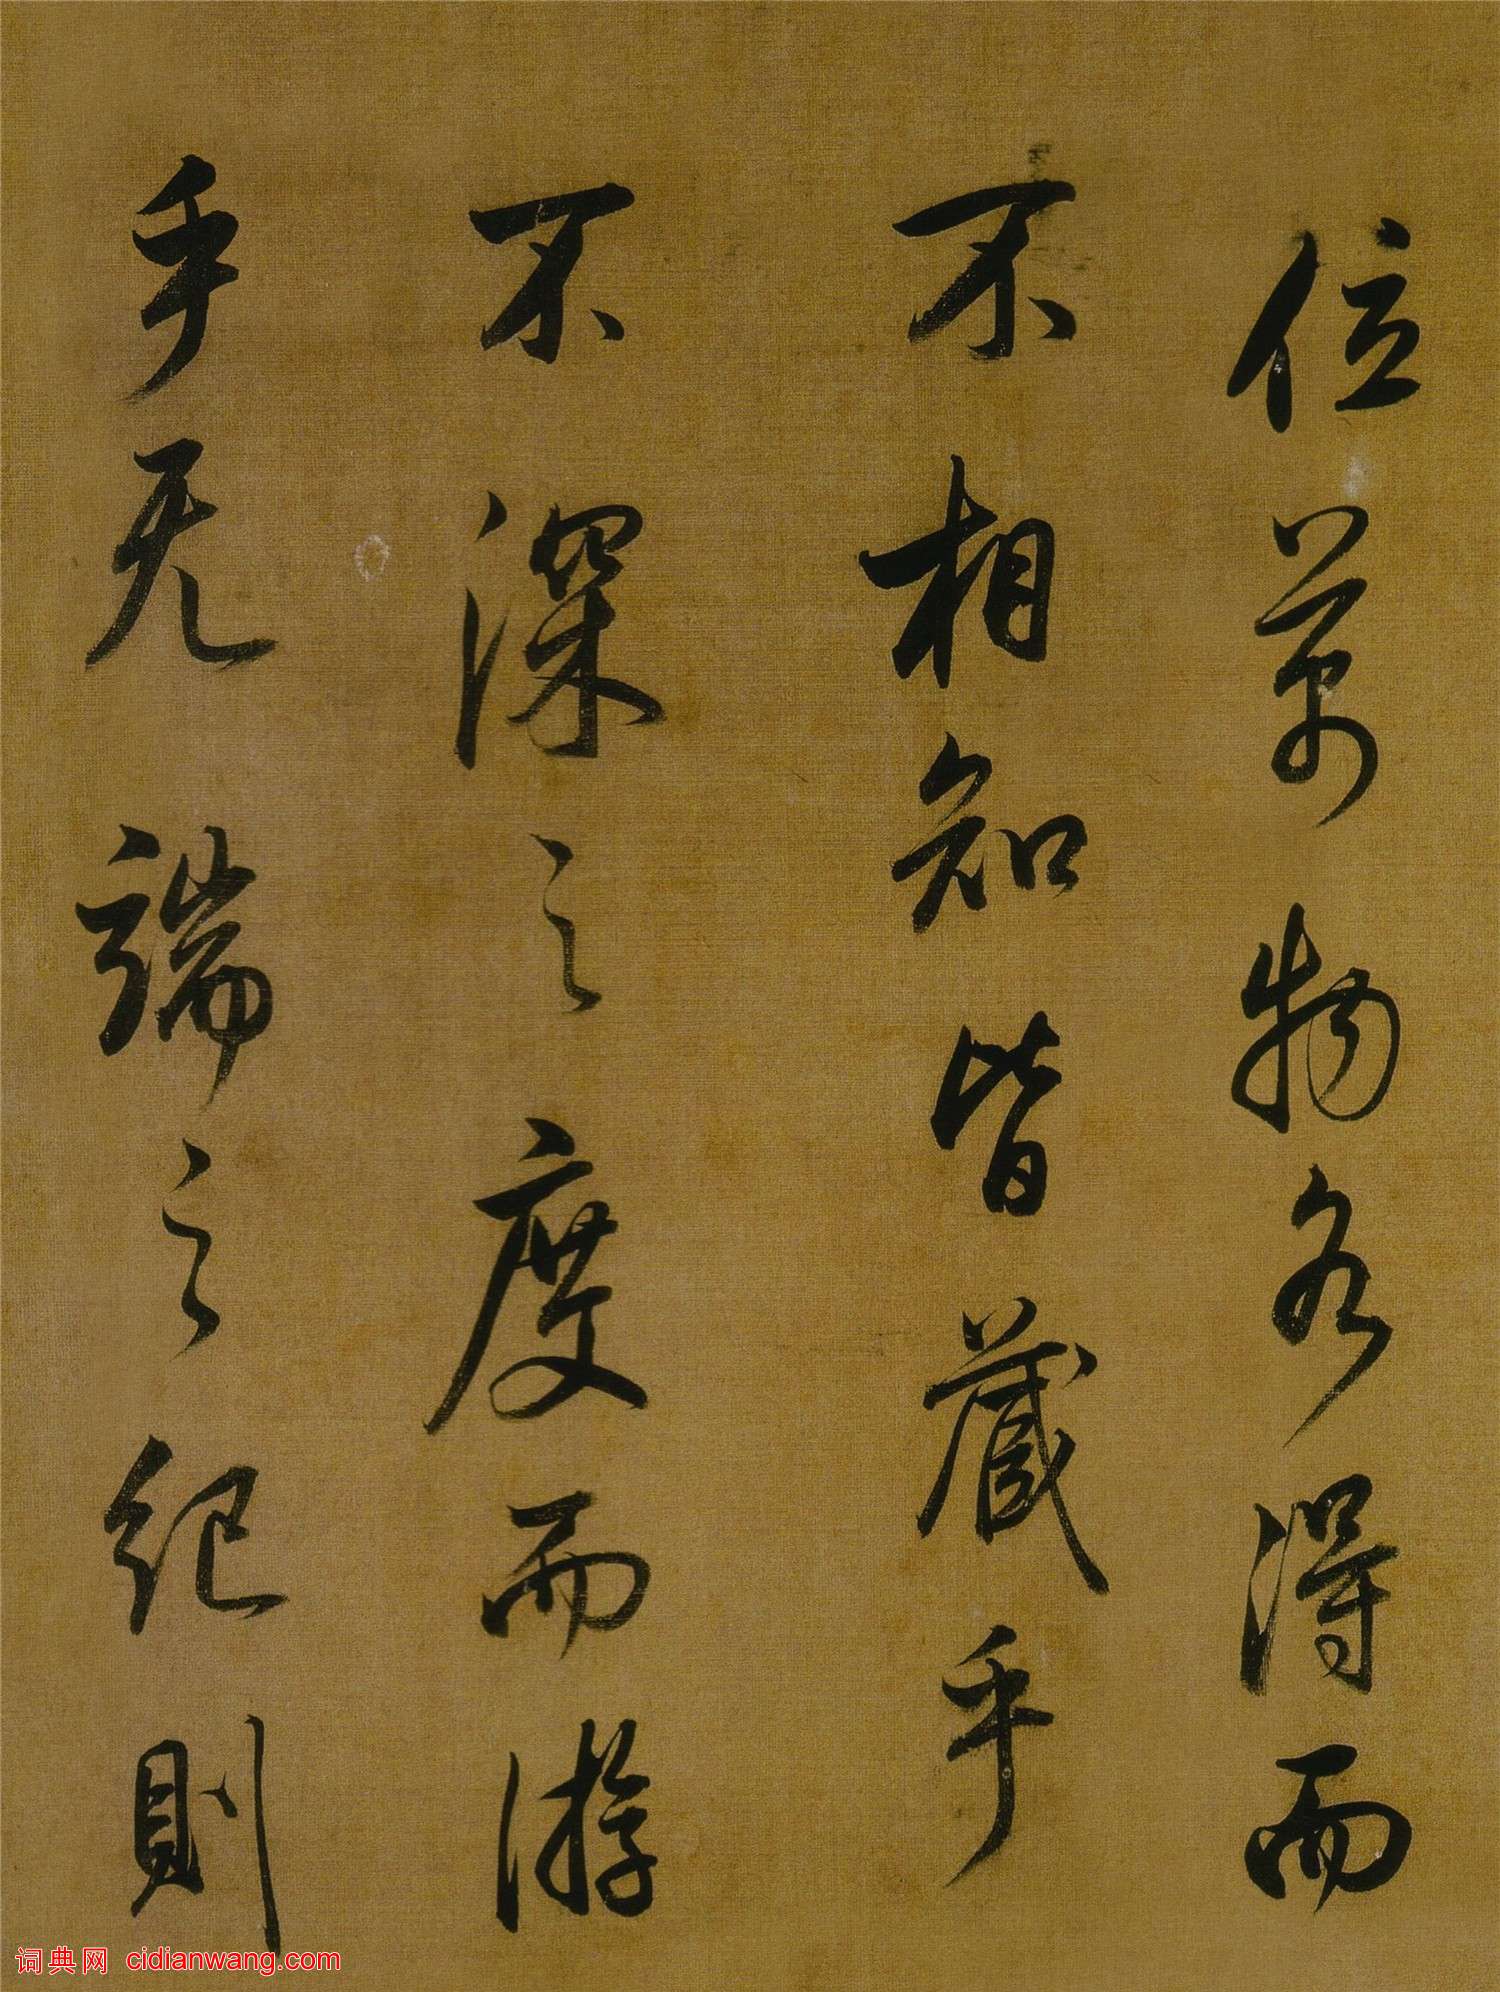 位萬物各得而
不相知皆藏乎
不深之度而游
乎无端之紀則
词典网 cidianwang.com